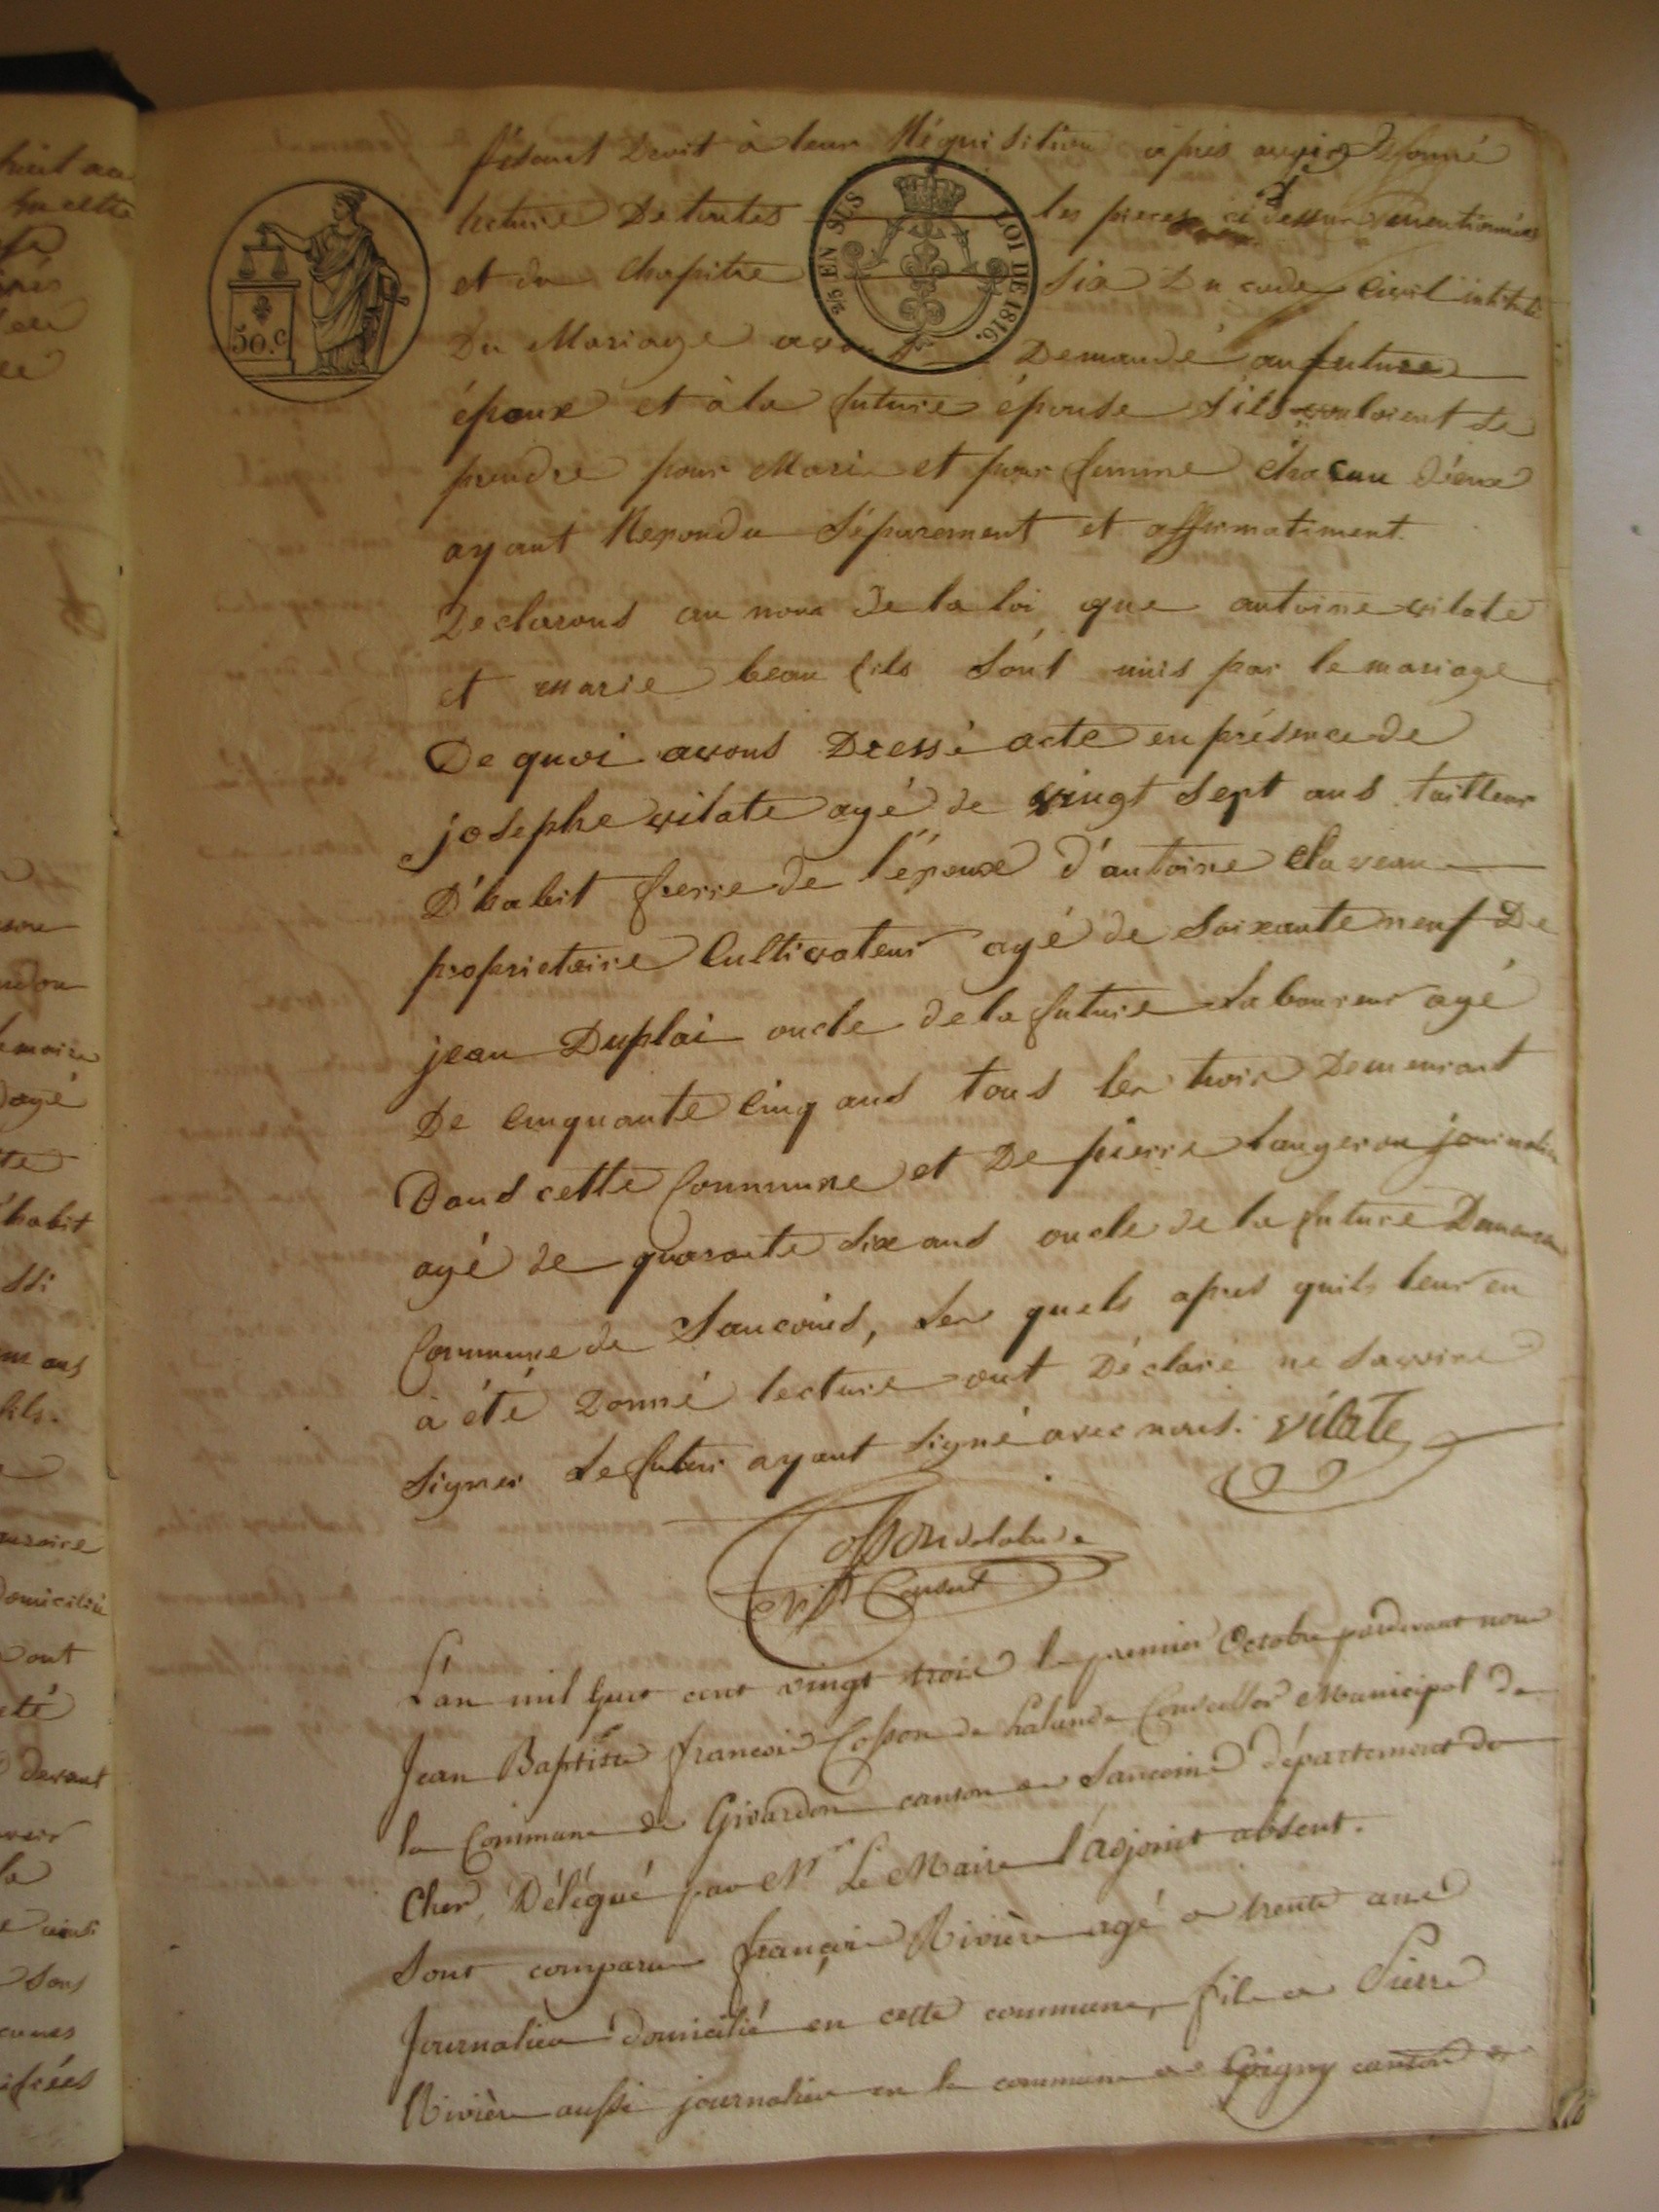 fésant Droit à leur Réquisition après avoir Donné
lecture De toutes les pieces ci dessus mentionnées
et du Chapitre Six Du code Civil intitulé
Du Mariage avons Demandé au future
époux et à la future épouse S'ils vouloient Se
prendre pour Mari et pour femme Chacun d'eux
ayant Repondu Séparement et affirmatiment.
Declarons au nom de la loi que antoine vilate
et marie beau fils Sont unis par le mariage
De quoi avons Dressé acte en présence de
josephe vilate agé de vingt Sept ans tailleur
D'habit frerre de l'époux d'antoine Claveau
proprietaire Cultivateur agé de Soixante neuf De
jean Duplai oncle de la future laboureur agé
De Cinquante Cinq ans tous les trois Demeurant
Dans cette Commune et De pierre laugeron journalier
agé de quarante Six ans oncle de la future
Commune de Sancoins, Les quels apres quils leur en
a été Donné lecture ont Déclaré ne Savoire
Signer Le futur ayant Signé avec nous. vilate
50.C
25 EN SUS
LOI DE 1816.
Cosson delalande
L'an mil huit cent vingt trois le premier Octobre pardevant nous
Jean Baptiste francois Cosson de Lalande Conseiller Municipal de
la Commune de Givardon canton de Sancoins département du
Cher, Délégué par Mr Le Maire l'adjoint absent.
Sont comparu françois Rivière agé de trente ans
Journalier domicilié en cette commune, fils de Pierre
Rivière aussi journalier en la commune de canton de